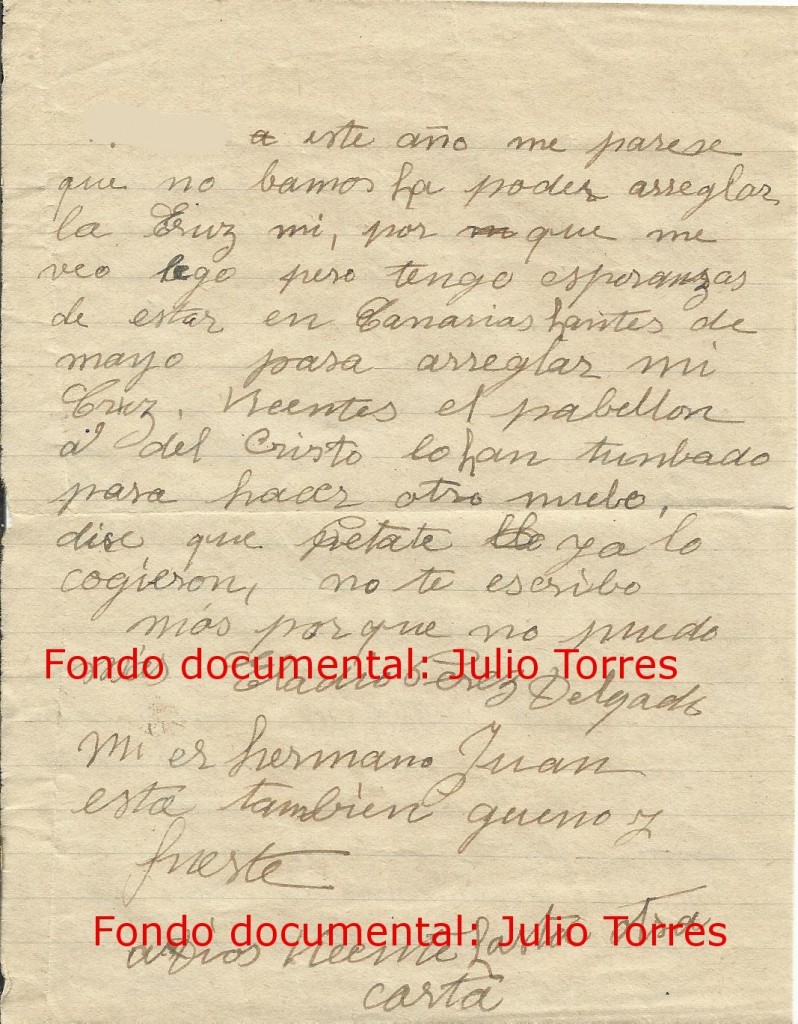 a este año me parese
que no bamos ha poder arreglar
la Cruz mi, por m que me
veo lego pero tengo esperanzas
de estar en Canarias hantes de
mayo para arreglar mi
Cruz. Vicentes el pabellon
del Cristo lo han tunbado
para hacer otro nuebo,
dise que ya lo
cogieron, no te escribo
más porque no puedo
Fondo documental: Julio Torres
más Eladio Perez Delgado
Mi er hermano Juan
esta tambien gueno y
fuerte
Fondo documental: Julio Torres
adios Vicente hasta otra
carta